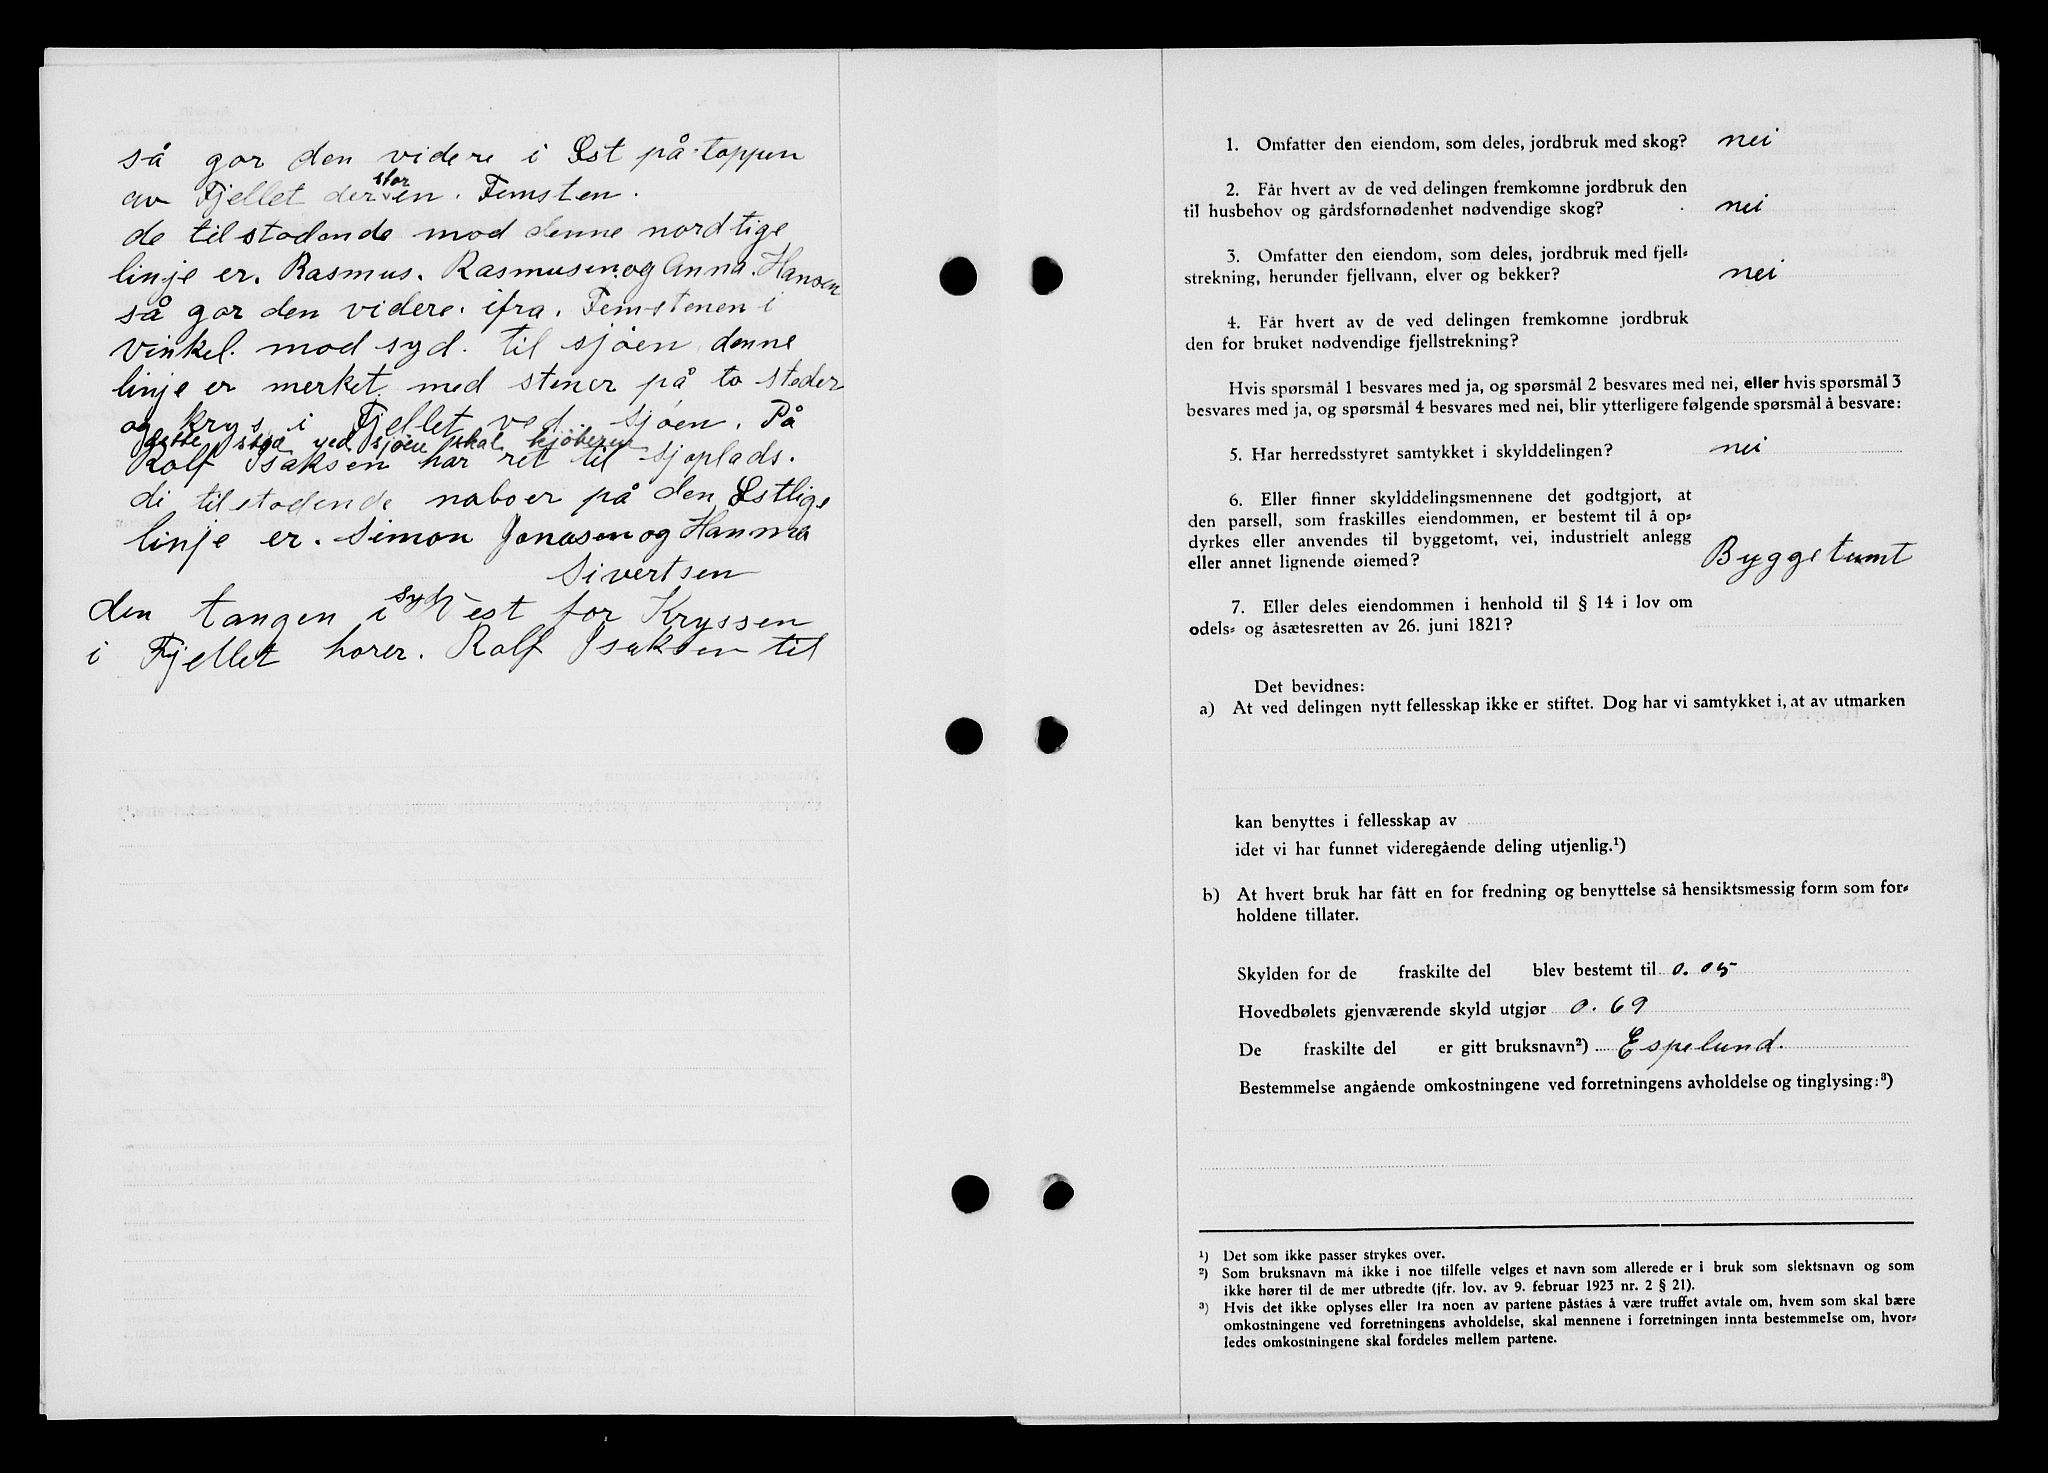 så gor den videre i Øst på toppen
av Fjellet der stor en. Femsten.
de tilstodende mod denne nordtige
linje er. Rasmus. Rasmusen. og Anna. Hansen
så gor den videre. ifra. Femstenen i
vinkel. mod syd. til sjøen denne
linje er merket med stener på to steder
og krys i Fjellet ved sjøen. På
dette sted ved sjøen skal kjøberen
Rolf Isaksen har ret til sjoplads.
di tilstodende naboer på den Østlige
linje er. Simon Jonasen og Hanna
Sivertsen
den tangen i syd Vest for Kryssen
i Fjellet horer. Rolf Isaksen til
1. Omfatter den eiendom, som deles, jordbruk med skog? nei
2. Får hvert av de ved delingen fremkomne jordbruk den
til husbehov og gårdsfornødenhet nødvendige skog? nei
3. Omfatter den eiendom, som deles, jordbruk med fjell-
strekning, herunder fjellvann, elver og bekker? nei
4. Får hvert av de ved delingen fremkomne jordbruk
den for bruket nødvendige fjellstrekning?
Hvis spørsmål 1 besvares med ja, og spørsmål 2 besvares med nei, eller hvis spørsmål 3
besvares med ja, og spørsmål 4 besvares med nei, blir ytterligere følgende spørsmål å besvare:
5. Har herredsstyret samtykket i skylddelingen? nei
6. Eller finner skylddelingsmennene det godtgjort, at
den parsell, som fraskilles eiendommen, er bestemt til å op-
dyrkes eller anvendes til byggetomt, vei, industrielt anlegg
eller annet lignende øiemed? Byggetumt
7. Eller deles eiendommen i henhold til § 14 i lov om
odels- og åsætesretten av 26. juni 1821?
Det bevidnes:
a) At ved delingen nytt fellesskap ikke er stiftet. Dog har vi samtykket i, at av utmarken
kan benyttes i fellesskap av
idet vi har funnet videregående deling utjenlig.¹)
b) At hvert bruk har fått en for fredning og benyttelse så hensiktsmessig form som for-
holdene tillater.
Skylden for de fraskilte del blev bestemt til 0.05
Hovedbølets gjenværende skyld utgjør 0.69
De fraskilte del er gitt bruksnavn²) Espelund.
Bestemmelse angående omkostningene ved forretningens avholdelse og tinglysing:³)
¹) Det som ikke passer strykes over.
²) Som bruksnavn må ikke i noe tilfelle velges et navn som allerede er i bruk som slektsnavn og som
ikke hører til de mer utbredte (jfr. lov. av 9. februar 1923 nr. 2 § 21).
³) Hvis det ikke oplyses eller fra noen av partene påståes å være truffet avtale om, hvem som skal bære
omkostningene ved forretningens avholdelse, skal mennene i forretningen innta bestemmelse om, hvor-
ledes omkostningene skal fordeles mellem partene.